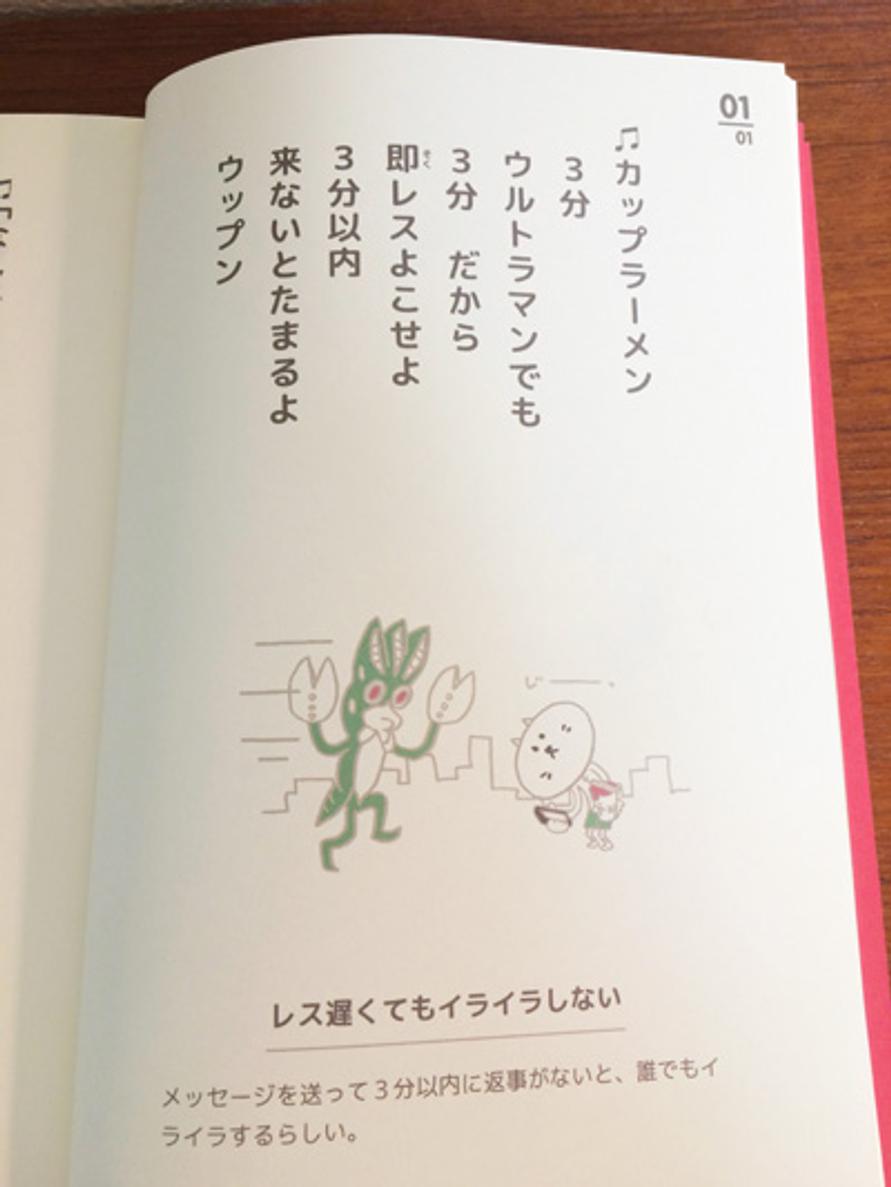 01
01
♫カップラーメン
3分
ウルトラマンでも
3分 だから
即レスよこせよ
そく
3分以内
来ないとたまるよ
ウップン
じー
レス遅くてもイライラしない
メッセージを送って3分以内に返事がないと、誰でもイ
ライラするらしい。